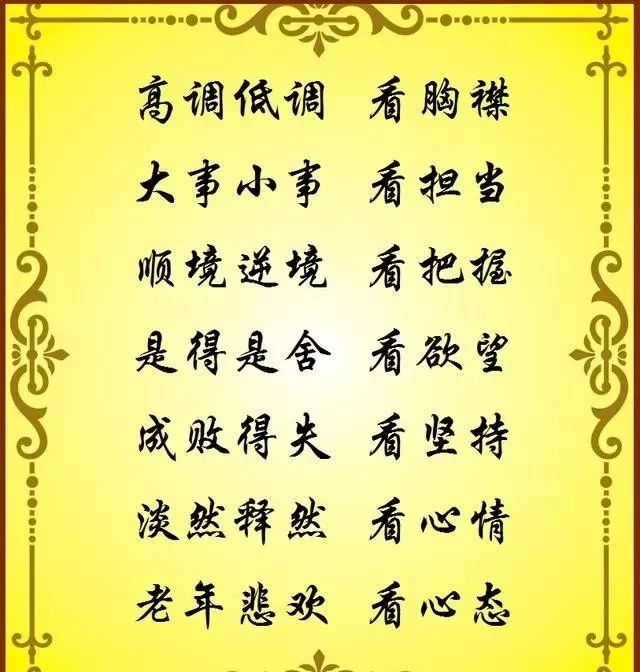 高调低调 看胸襟
大事小事 看担当
顺境逆境 看把握
是得是舍 看欲望
成败得失 看坚持
淡然释然 看心情
老年悲欢 看心态